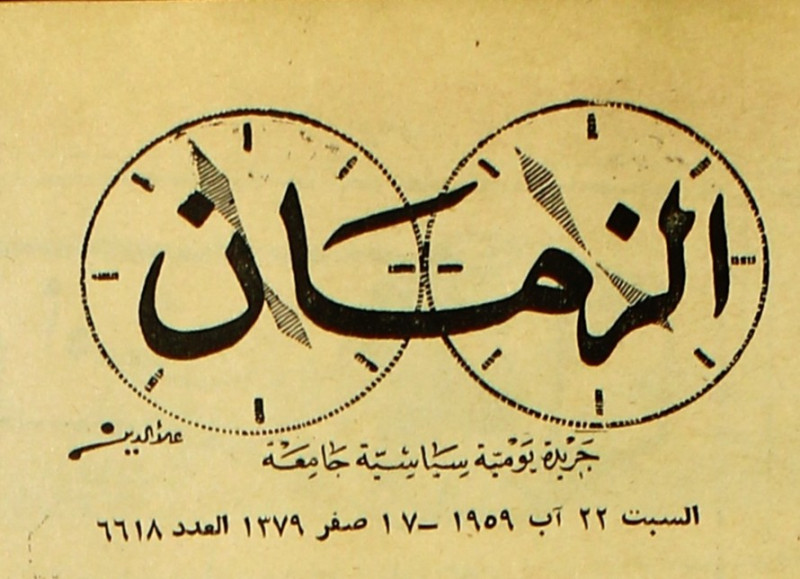 الزمان
علاء الدين
جَريْدة يَوْميّة سِيَاسِيّة جَامِعَة
السبت ٢٢ آب ١٩٥٩ – ١٧ صفر ١٣٧٩ العدد ٦٦١٨